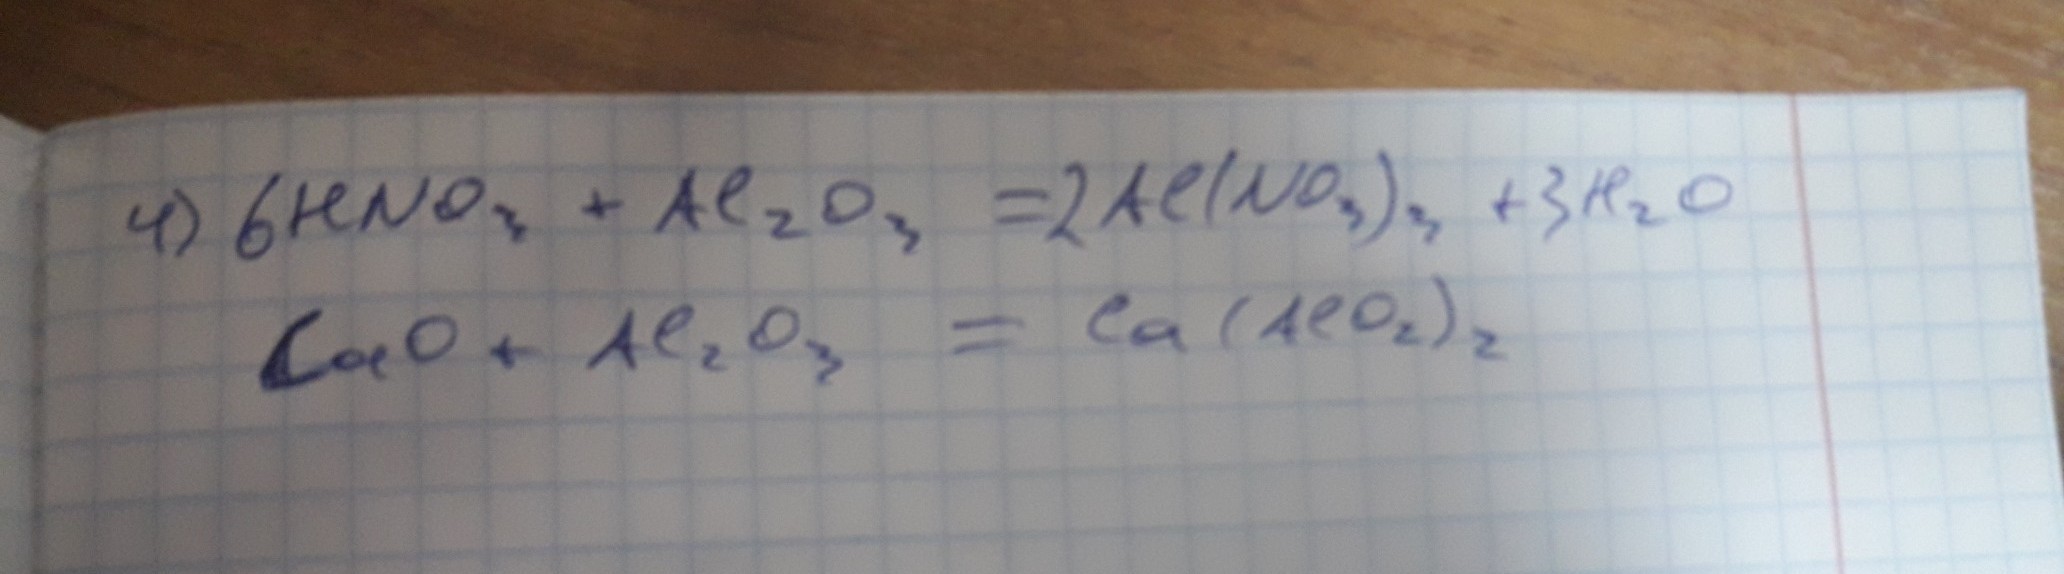 4) 6HNO₃ + Al₂O₃ =2Al(NO₃)₃ +3H₂O
CaO + Al₂O₃ = Ca(AlO₂)₂